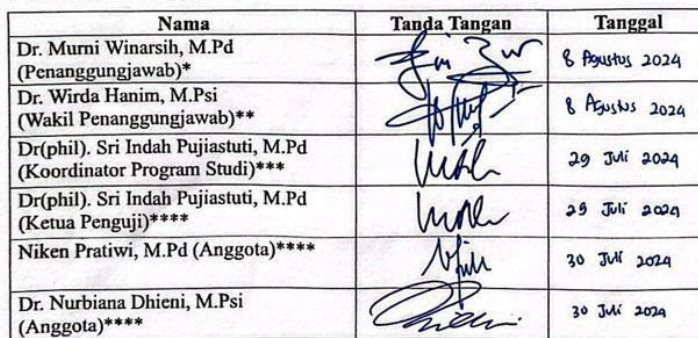 Nama Tanda Tangan Tanggal
Dr. Murni Winarsih, M.Pd
(Penanggungjawab)* 8 Agustus 2024
Dr. Wirda Hanim, M.Psi
(Wakil Penanggungjawab)** 8 Agustus 2024
Dr(phil). Sri Indah Pujiastuti, M.Pd
(Koordinator Program Studi)*** 29 Juli 2024
Dr(phil). Sri Indah Pujiastuti, M.Pd
(Ketua Penguji)**** 29 Juli 2024
Niken Pratiwi, M.Pd (Anggota)**** 30 Juli 2024
Dr. Nurbiana Dhieni, M.Psi
(Anggota)**** 30 Juli 2024